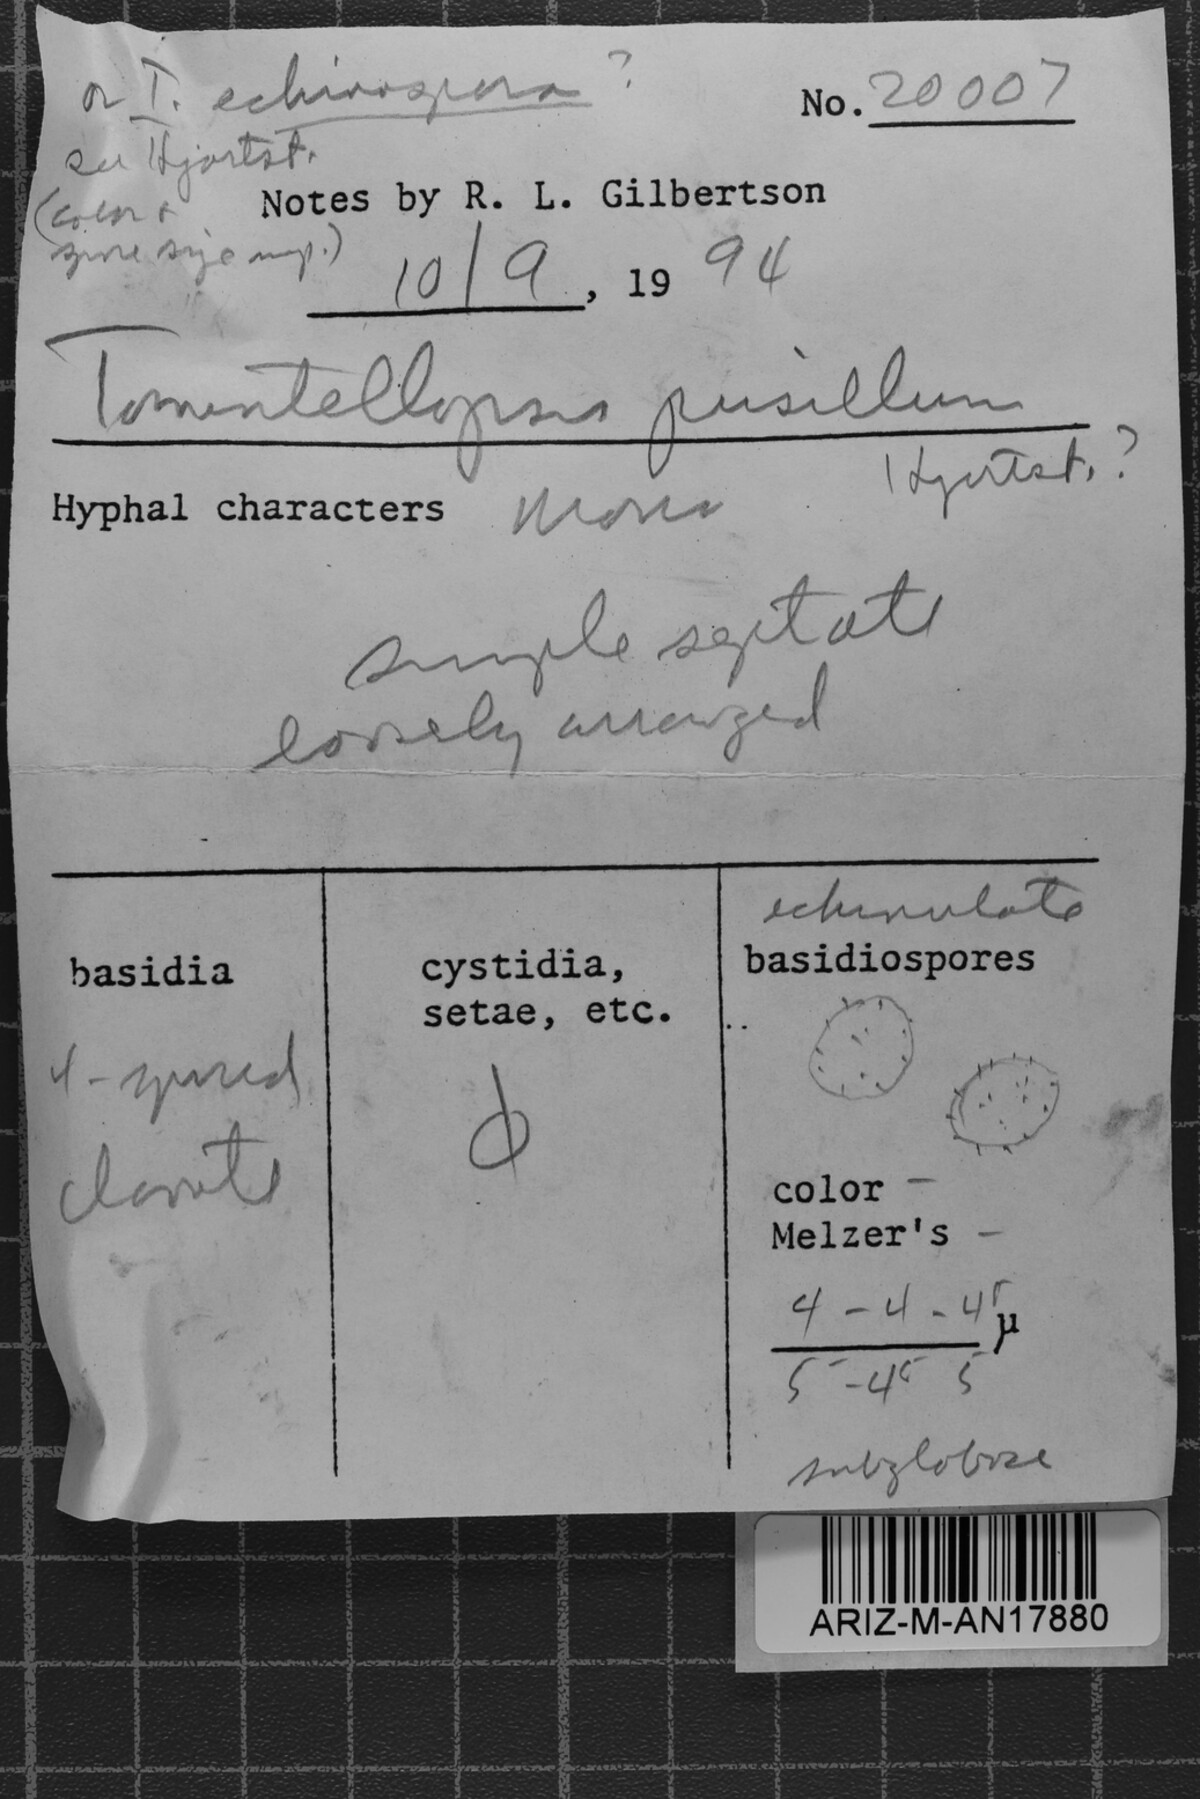 or T. echinospora ?
No. 20007
see Hjortst.
(color &
spore size imp.)
Notes by R. L. Gilbertson
10/9, 19 94
Tomentellopsis pusillum
Hjortst. ?
Hyphal characters mono
simple septate
loosely arranged
echinulate
basidia
cystidia,
setae, etc.
basidiospores
4-spored
clavate
color -
Melzer's -
4 - 4 - 45 µ
5 - 45 5
subglobose
ARIZ-M-AN17880